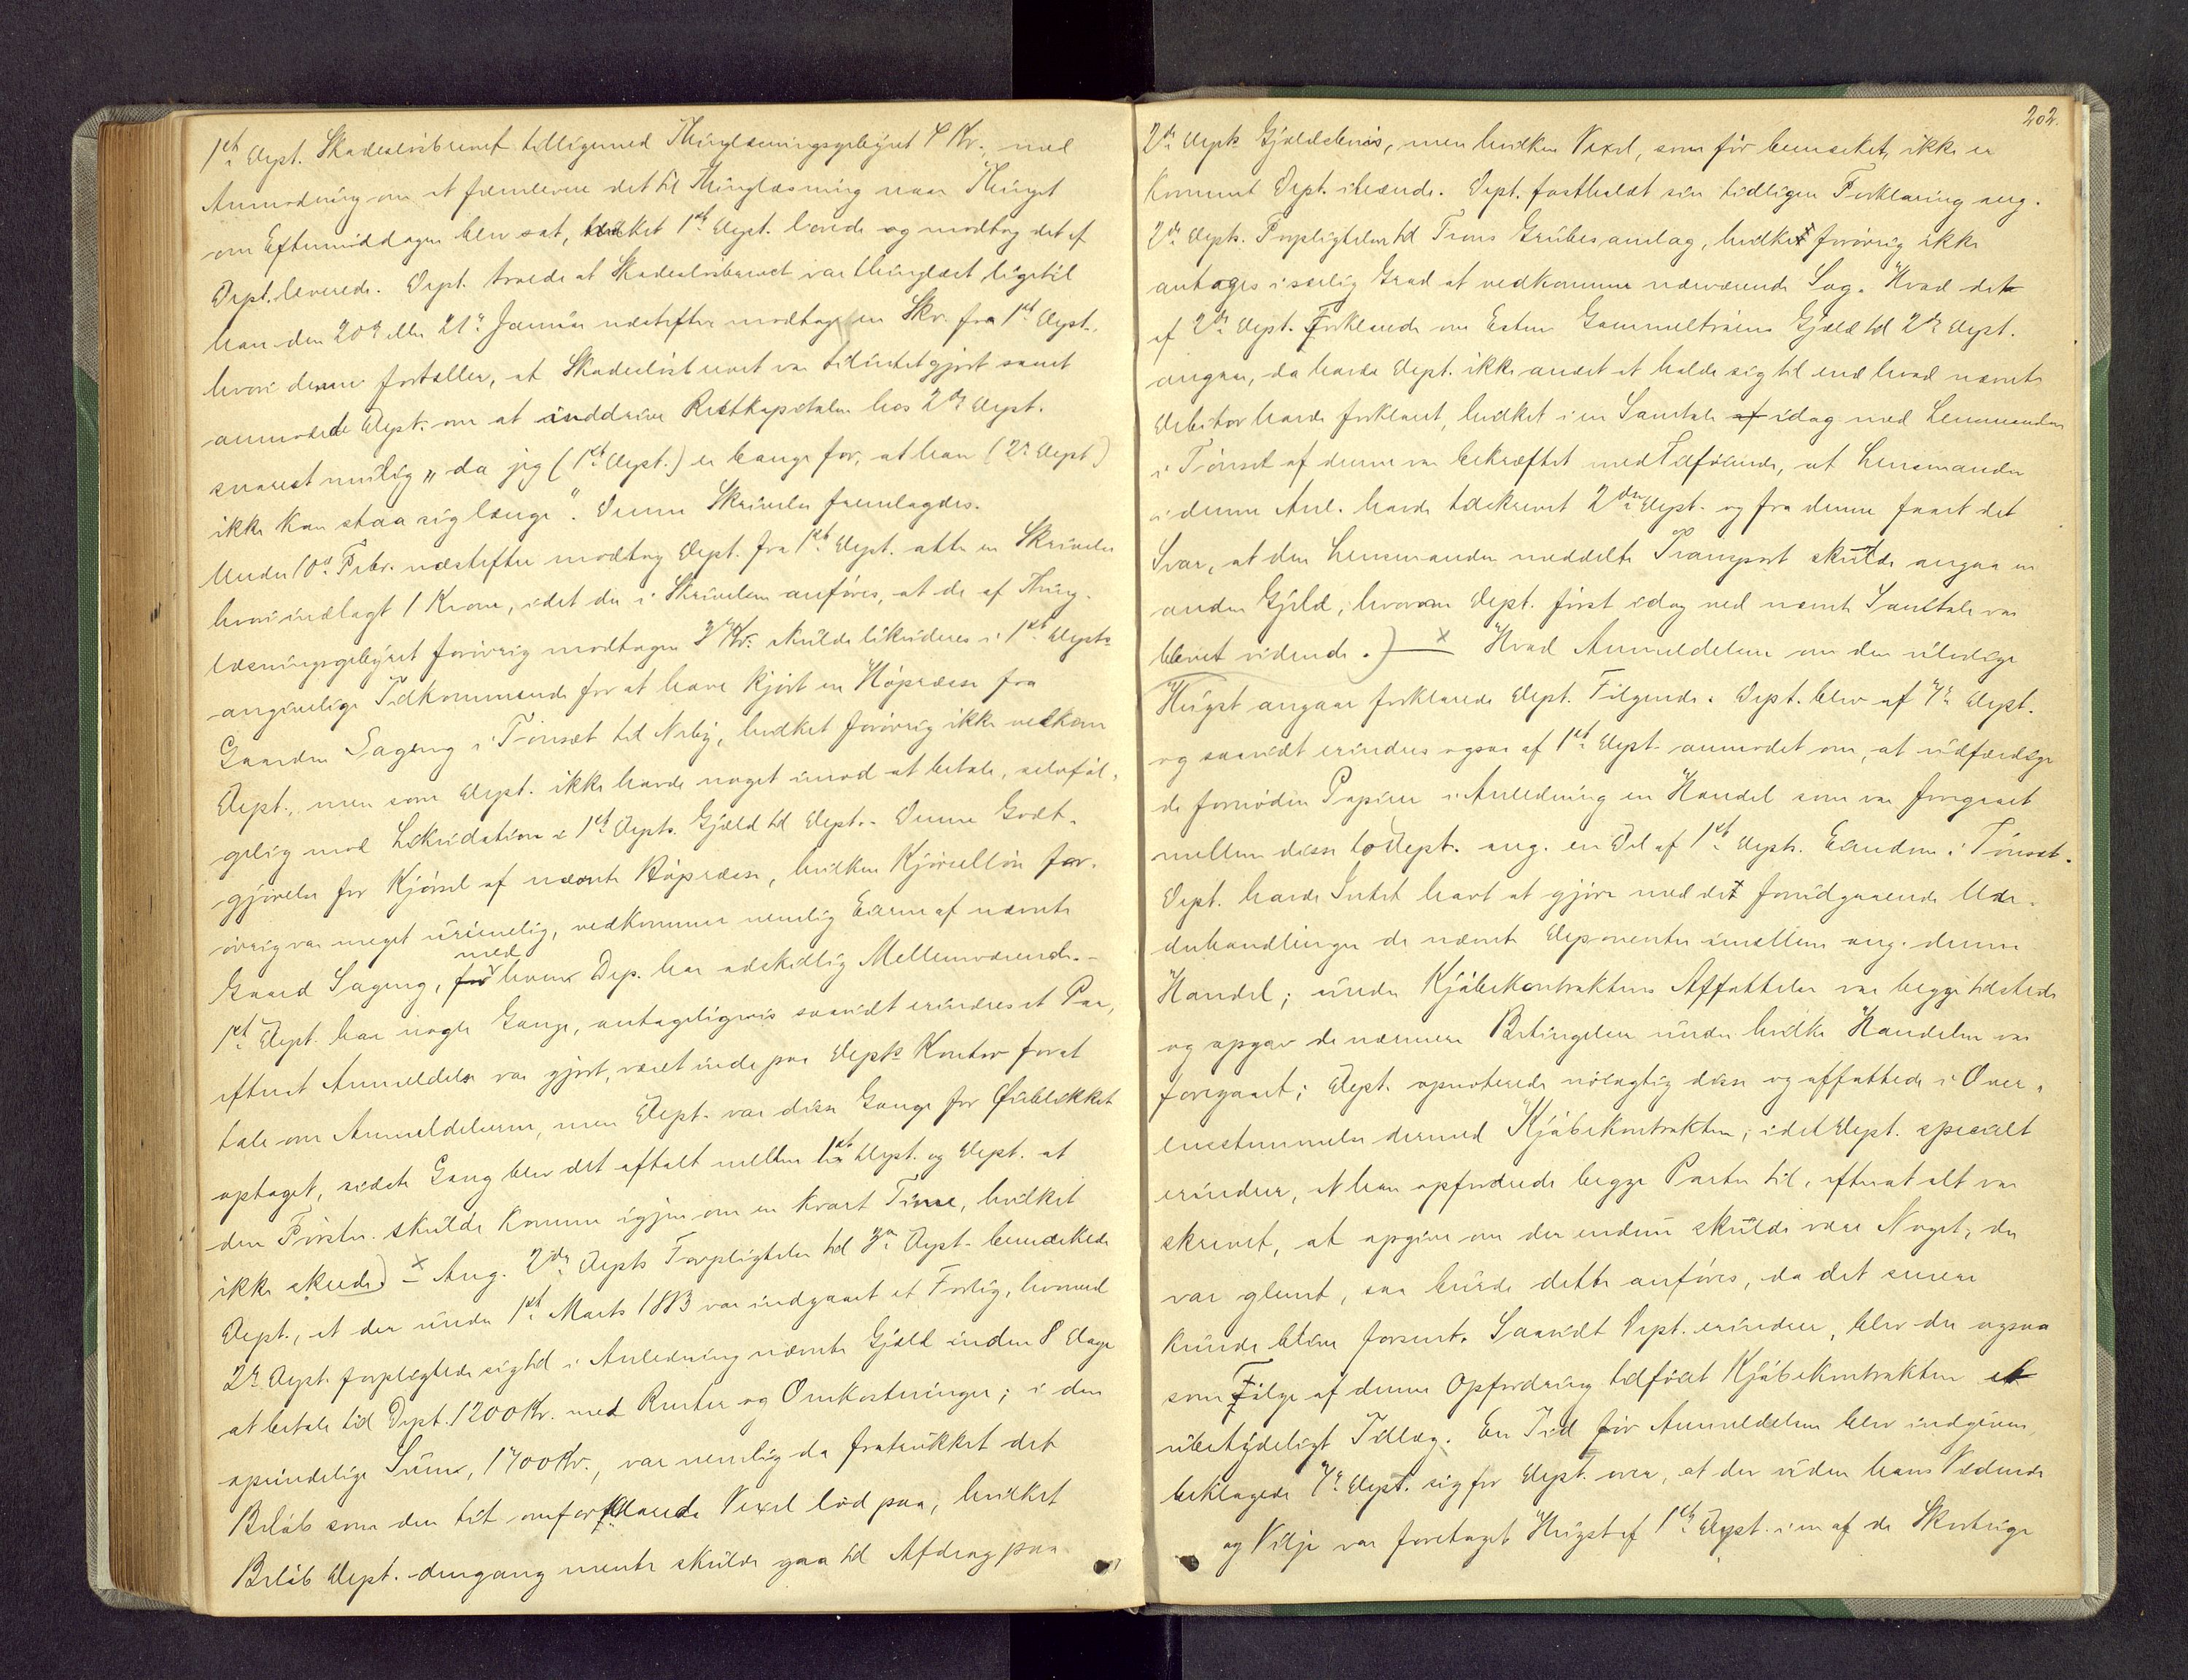 1ste Dept. Skadesløsbrevet tilligemed Thinglæsningsgebyret 4 Kr., med
Anmodning om at fremlevere det til Thinglæsning naar Thinget
om Eftermiddagen blev sat, hvilket 1ste Dept. lovede og modtog det af
Dept. leverede. Dept. troede at Skadesløsbrevet var thinglæst ligetil
han den 20de eller 21de Januar næstefter modtog en Skr. fra 1ste Dept.,
hvori denne fortæller, at Skadesløsbrevet var tilintetgjort samt
anmodede Dept. om at inddrive Restkapitalen hos 2den Dept.
snarest mulig „da jeg (1ste Dept.) er bange for, at han (2de Dept)
ikke kan staa sig længe“. Denne Skrivelse fremlagdes.
Under 10de Febr. næstefter modtog Dept. fra 1ste Dept. atter en Skrivelse
hvori indlagt 1 Krone, idet der i Skrivelsen anføres, at de af Thing-
læsningsgebyret forøvrig modtagne 3 Kr. skulde likvideres i 1ste Depts
angivelige Tilkommende for at have kjørt en Høpresse fra
Gaarden Lageng i Tønset til Neby, hvilket forøvrig ikke vedkom
Dept., men som Dept. ikke havde noget imod at betale, selvføl-
gelig mod Likvidation i 1ste Depts. Gjæld til Dept. - Denne Godt-
gjørelse for Kjørsel af nævnte Høpresse, hvilken Kjørselløn for-
øvrig var meget urimelig, vedkommer nemlig Eieren af nævnte
Gaard Lageng, for med hvem Dep. har adskillig Mellemværende. -
1ste Dept. har nogle Gange, antageligvis saavidt erindres et Par,
efterat Anmeldelse var gjort, været inde paa Depts Kontor for at
tale om Anmeldelserne, men Dept. var disse Gange for Øieblikket
optaget, sidste Gang blev det aftalt mellem 1ste Dept. og Dept. at
den Første skulde komme igjen om en kvart Time, hvilket
ikke skede.) x Ang. 2den Depts Forpligtelse til 3die Dept. bemærkede
Dept., at der under 1ste Marts 1883 var indgaaet et Forlig, hvorved
2de Dept. forpligtede sig til i Anledning nævnte Gjæld inden 8 Dage
at betale til Dept. 1200 Kr. med Renter og Omkostninger; i den
oprindelige Sum, 1700 Kr., var nemlig da fratrukket det
Beløb som den tit omforklarede Vexel lød paa, hvilket
Beløb Dept. dengang mente skulde gaa til Afdrag paa
202.
2den Depts Gjældsbevis, men hvilken Vexel, som før bemerket, ikke er
kommet Dept. ihænde. Dept. fastholdt sin tidligere Forklaring ang.
2den Depts. Forpligtelser til Trons Grubesanlag, hvilket forøvrig ikke
antages i særlig Grad at vedkomme nærværende Sag. Hvad det
af 2den Dept. Forklarede om Esten Gammeltrøens Gjæld til 2den Dept.
angaar, da havde Dept. ikke andet at holde sig til end hvad nævnte
Debitor havde forklaret, hvilket i en Samtale af idag med Lensmanden
i Tønset af denne var bekræftet med Tilføiende, at Lensmanden
i denne Anl. havde tilskrevet 2den Dept. og fra denne faaet det
Svar, at den Lensmanden meddelte Transport skulde angaa en
anden Gjæld, hvorom Dept. først idag ved nævnte Samtale var
blevet vidende.) x Hvad Anmeldelsen om den ulovlige
Hugst angaar forklarede Dept. Følgende. Dept. blev af 4de Dept.
og saavidt erindres ogsaa af 1ste Dept. anmodet om, at udfærdige
de fornødne Papirer i Anledning en Handel som var foregaaet
mellem disse to Dept. ang. en Del af 1ste Depts. Eiendom i Tønset.
Dept. havde Intet havt at gjøre med det forudgaaende Un-
derhandlinger de nævnte Deponenter imellem ang. denne
Handel; under Kjøbekontraktens Affattelse var begge tilstede
og opgav de nærmere Betingelser under hvilke Handelen var
foregaaet; Dept. opnoterede nøiagtig disse og affattede i Over-
ensstemmelse dermed Kjøbekontrakten; idet Dept. specielt
erindrer, at han opfordrede begge Parter til, efterat alt var
skrevet, at opgive om der endnu skulde være Noget, der
var glemt, saa burde dette anføres, da det senere
kunde blive forsent. Saavidt Dept. erindrer, blev der ogsaa
som Følge af denne Opfordring tilføiet Kjøbekontrakten et
ubetydeligt Tillæg. En Tid før Anmeldelsen blev indgiven
beklagede 4de Dept. sig for Dept. over, at der uden hans Vidende
og Vilje var foretaget Hugst af 1ste Dept. i en af de Skovteige